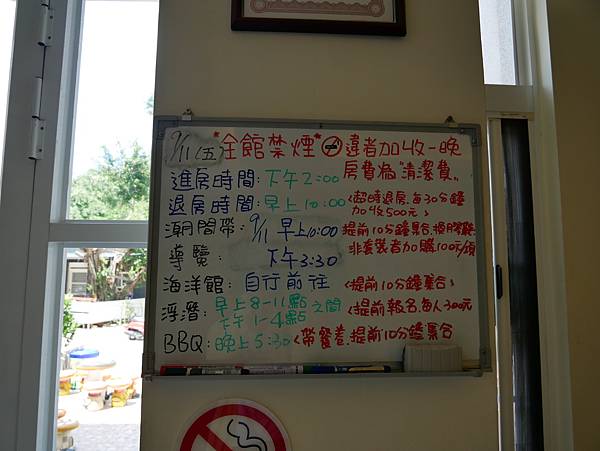 9/11(五) *全館禁煙* 違者加收一晚
房費為"清潔費"
進房時間:下午2:00
退房時間:早上10:00 <超時退房,每30分鐘
加收500元>
潮間帶:9/11 早上10:00 提前10分鐘集合,
非套裝者加購100元/
導覽 下午3:30
海洋館:自行前往 <提前10分鐘集合>
浮潛:早上8-11點之間 <提前報名,每人300元
下午1-4點
BBQ:晚上5:30 <帶餐卷,提前10分鐘集合